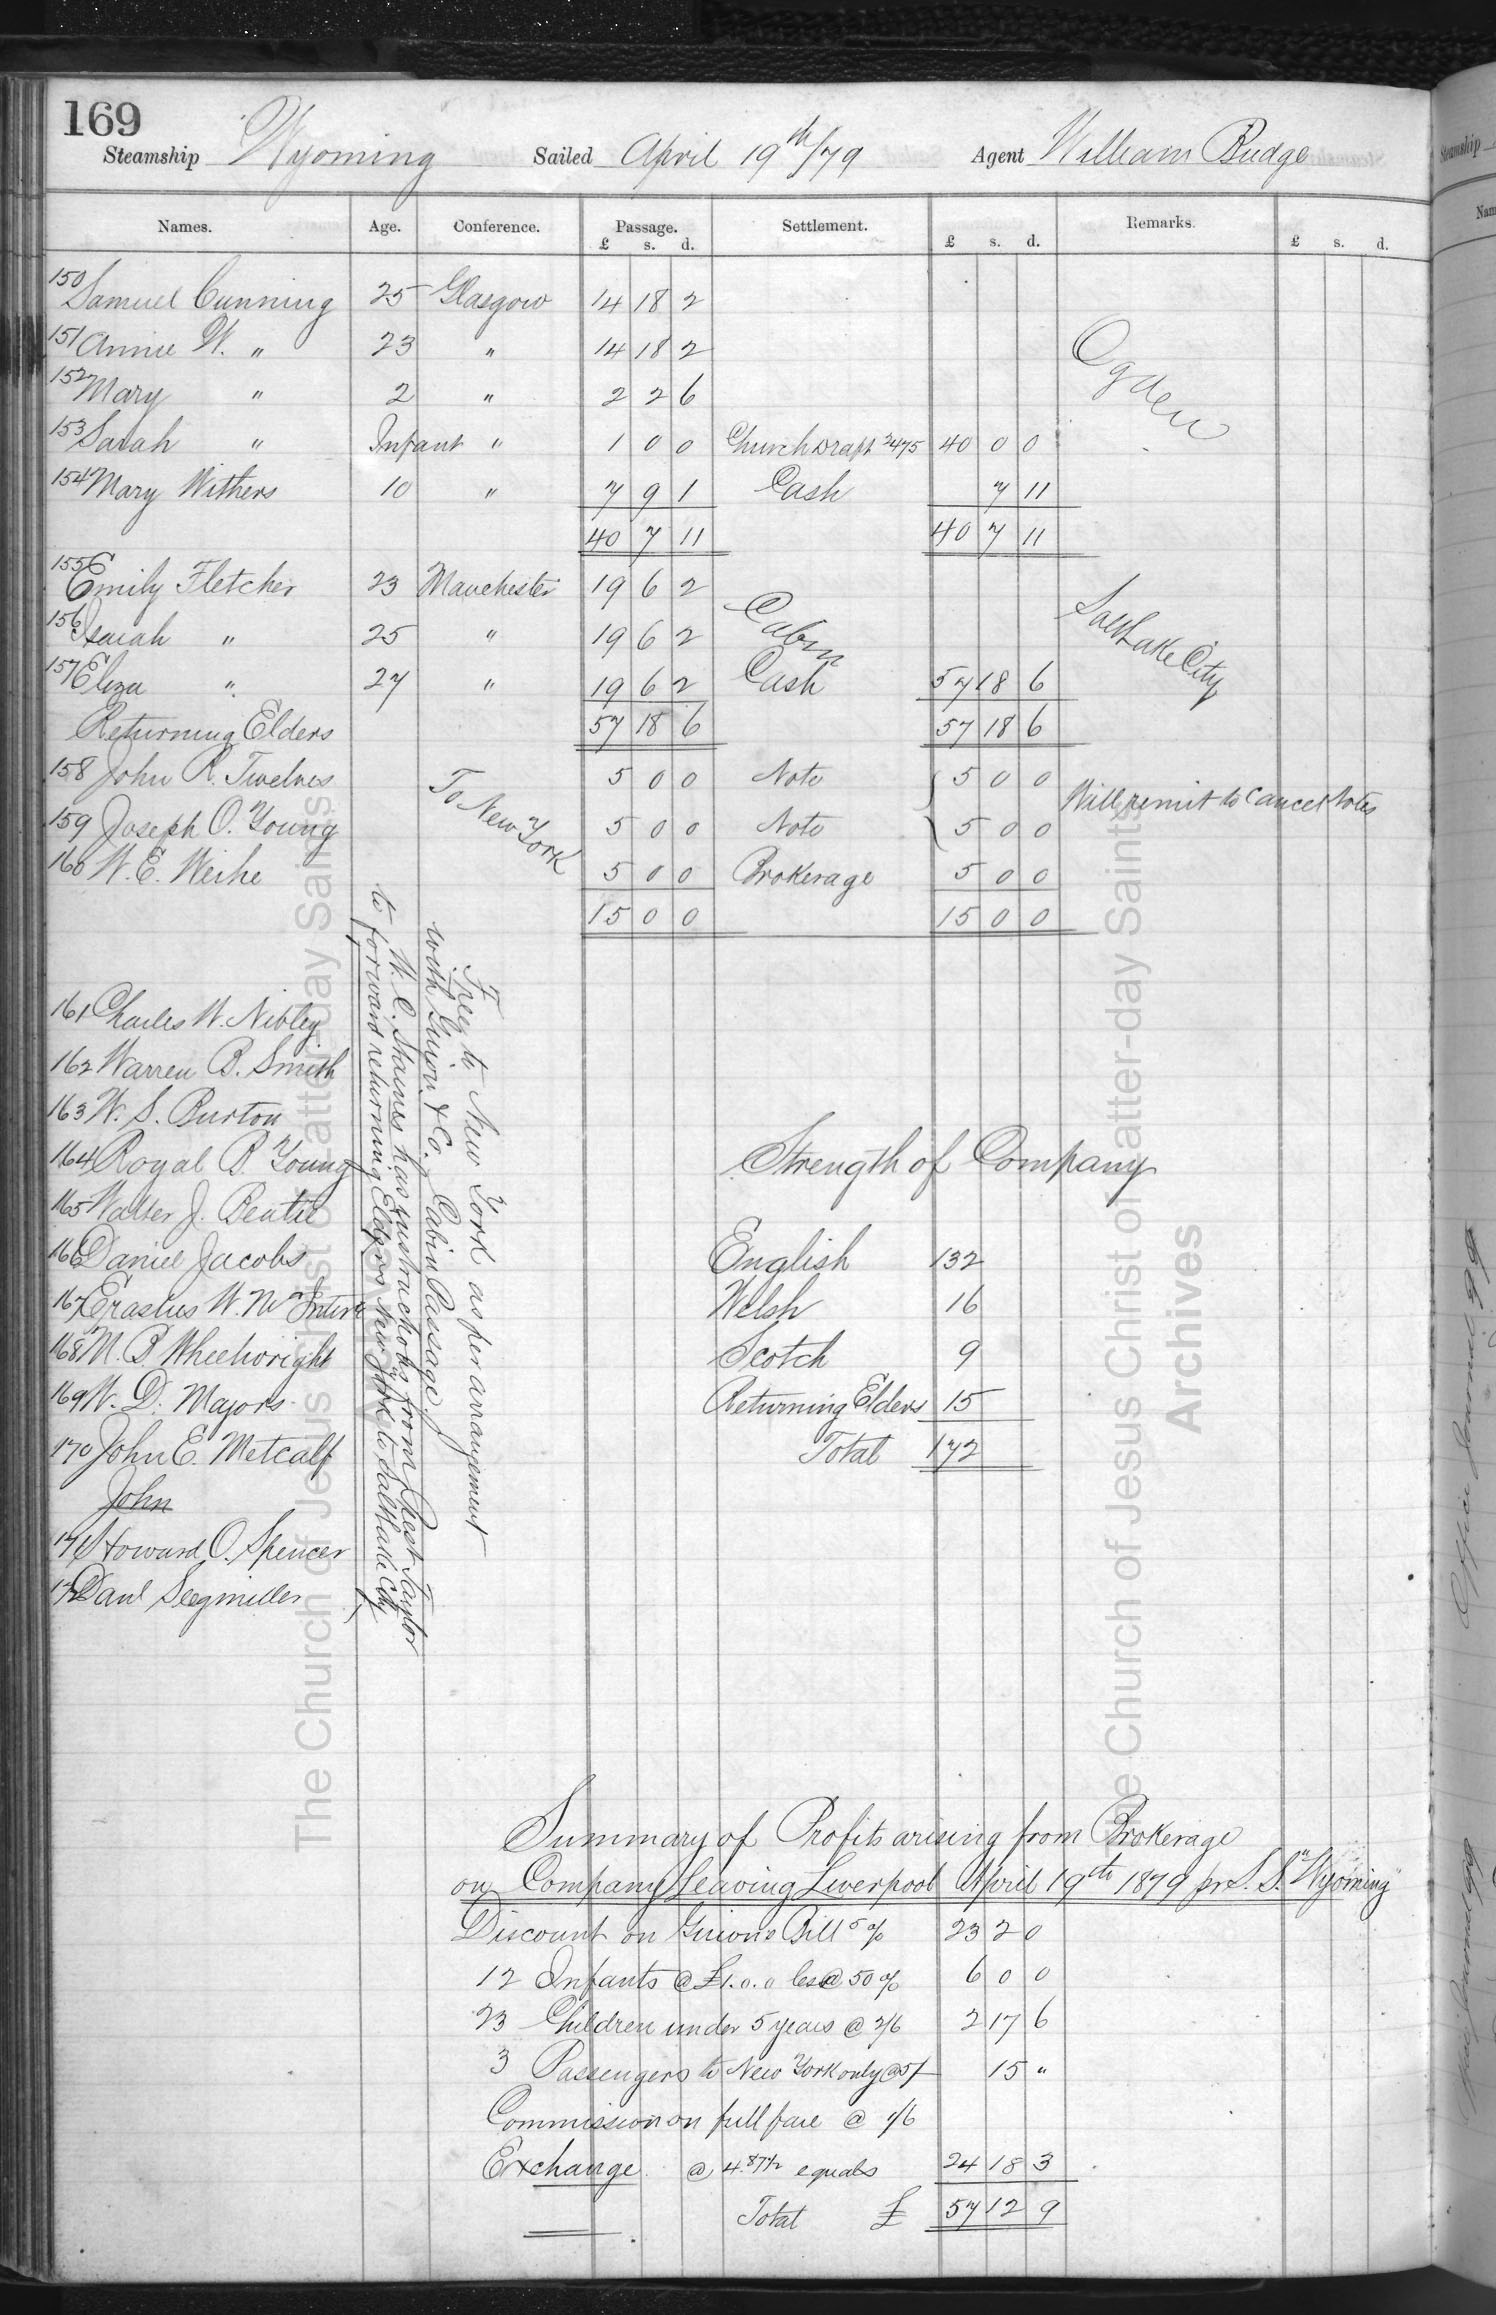 169
Steamship Wyoming Sailed April 19th/79 Agent William Budge
Names. Age. Conference. Passage. Settlement. Remarks.
£ s. d. £ s. d. £ s. d.
150 Samuel Cunning 25 Glasgow 14 18 2
151 Annie W. " 23 " 14 18 2
152 Mary " 2 " 2 2 6
Ogden
153 Sarah " Infant " 1 0 0 Church Draft 2475 40 0 0
154 Mary Withers 10 " 7 9 1 Cash 7 11
40 7 11 40 7 11
155 Emily Fletcher 23 Manchester 19 6 2
156 Isaiah " 25 " 19 6 2 Cabin
Salt Lake City
157 Eliza " 27 " 19 6 2 Cash 57 18 6
Returning Elders 57 18 6 57 18 6
158 John R. Twelves 5 0 0 Note 5 0 0
To New York
Will remit to cancel Notes
159 Joseph O. Young 5 0 0 Note 5 0 0
160 W. E. Weihe 5 0 0 Brokerage 5 0 0
15 0 0 15 0 0
Free to New York as per arrangement
with Guion & Co. Cabin Passage.
W. C. Staines has instructions from Prest Taylor
to forward returning Elders New York to Salt Lake City
161 Charles W. Nibley
162 Warren B. Smith
163 W. S. Burton
164 Royal B. Young
165 Walter J. Beatie
166 Daniel Jacobs
167 Erastus W. McIntire
168 M. B. Wheelwright
169 W. D. Majors
170 John E. Metcalf
John
171 Howard O. Spencer
172 Danl Seegmiller
Strength of Company
English 132
Welsh 16
Scotch 9
Returning Elders 15
Total 172
Summary of Profits arising from Brokerage
on Company leaving Liverpool April 19th 1879 pr S. S. "Wyoming"
Discount on Guions Bill 5% 23 2 0
12 Infants @ £1.0.0 less @ 50% 6 0 0
23 Children under 5 years @ 2/6 2 17 6
3 Passengers to New York only @ 5/- 15 "
Commission on full fare @ /6
Exchange @ 4.87½ equals 24 18 3
Total £ 57 12 9
The Church of Jesus Christ of Latter-day Saints
The Church of Jesus Christ of Latter-day Saints
Archives
Steamship
Nam
Office Journal 99